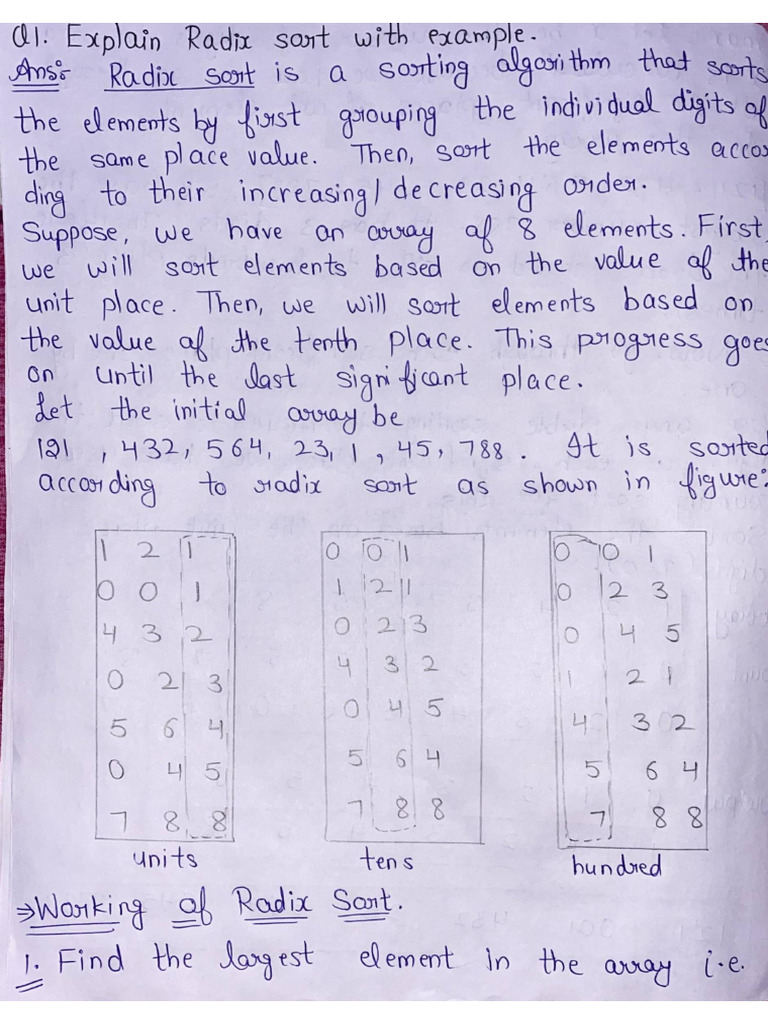 Q1. Explain Radix sort with example.
Ans:- Radix sort is a sorting algorithm that sorts
the elements by first grouping the individual digits of
the same place value. Then, sort the elements accor
ding to their increasing/decreasing order.
Suppose, we have an array of 8 elements. First,
we will sort elements based on the value of the
unit place. Then, we will sort elements based on
the value of the tenth place. This progress goes
on until the last significant place.
Let the initial array be
121, 432, 564, 23, 1, 45, 788. It is sorted
according to radix sort as shown in figure:
1 2 1
0 0 1
4 3 2
0 2 3
5 6 4
0 4 5
7 8 8
units
0 0 1
1 2 1
0 2 3
4 3 2
0 4 5
5 6 4
7 8 8
tens
0 0 1
0 2 3
0 4 5
1 2 1
4 3 2
5 6 4
7 8 8
hundred
⇒ Working of Radix Sort.
1. Find the largest element in the array i.e.